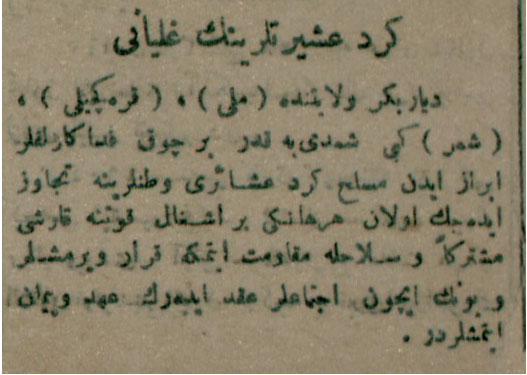 كرد عشيرتلرينك غليانى
ديار بكر ولايتنده ( ملى ) ، ( قره كچيلى ) ،
( شمر ) كبى شمدى‌يه قدر بر چوق فداكارلقلر
ابراز ايدن مسلح كرد عشائرى وطنلرينه تجاوز
ايده‌جك اولان هرهانكى بر اشغال قوتنه قارشى
مشتركاً و سلاحله مقاومت ايتمكه قرار ويرمشلر
و بونك ايچون اجتماعلر عقد ايده‌رك عهد و پيمان
ايتمشلردر .